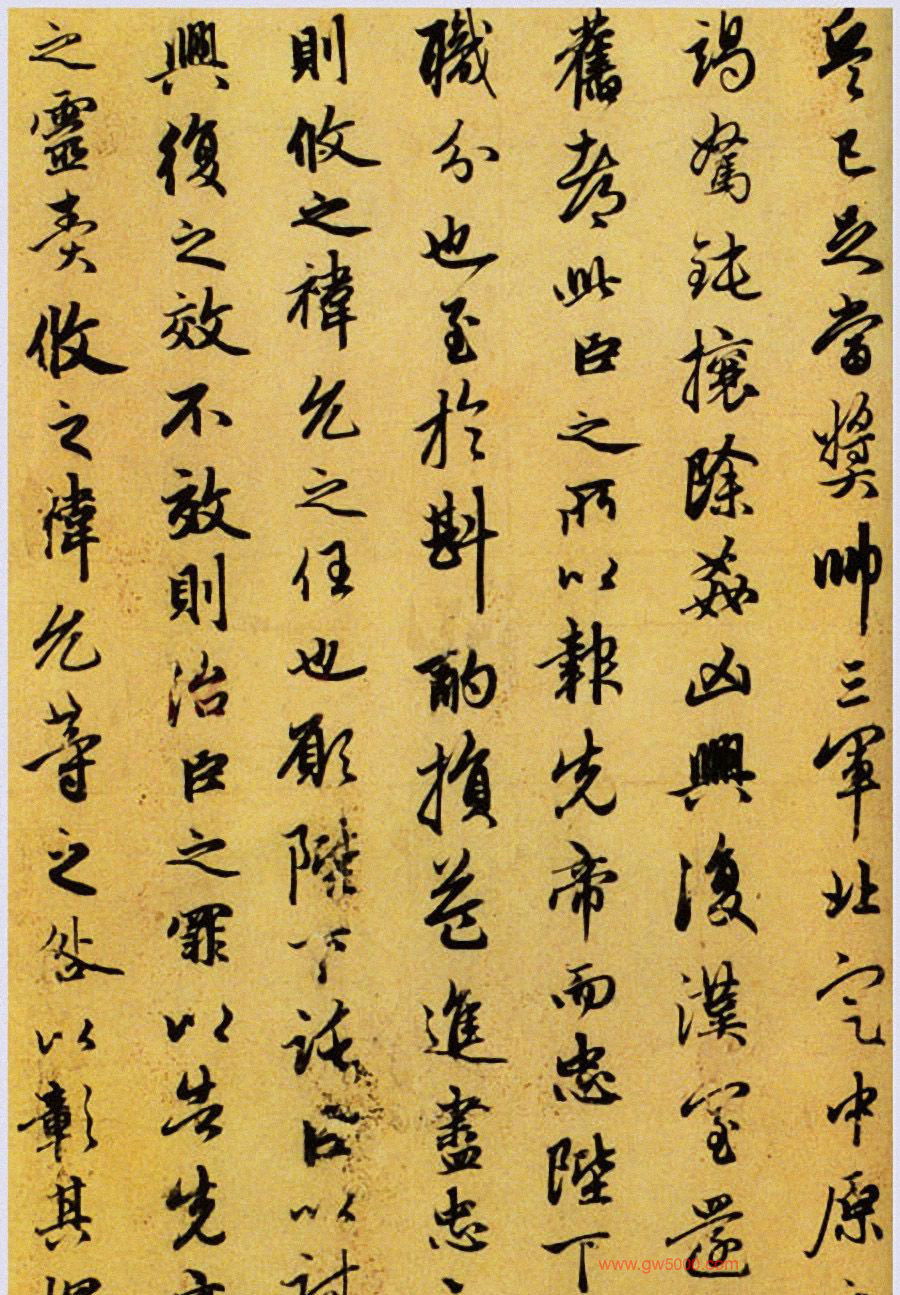 兵已足當獎帥三軍北定中原
竭駑鈍攘除姦凶興復漢室還
舊都此臣之所以報先帝而忠陛下
職分也至於斟酌損益進盡忠
則攸之禕允之任也願陛下託臣以討
興復之效不效則治臣之罪以告先
之靈責攸之禕允等之咎以彰其
www.gw5000.com